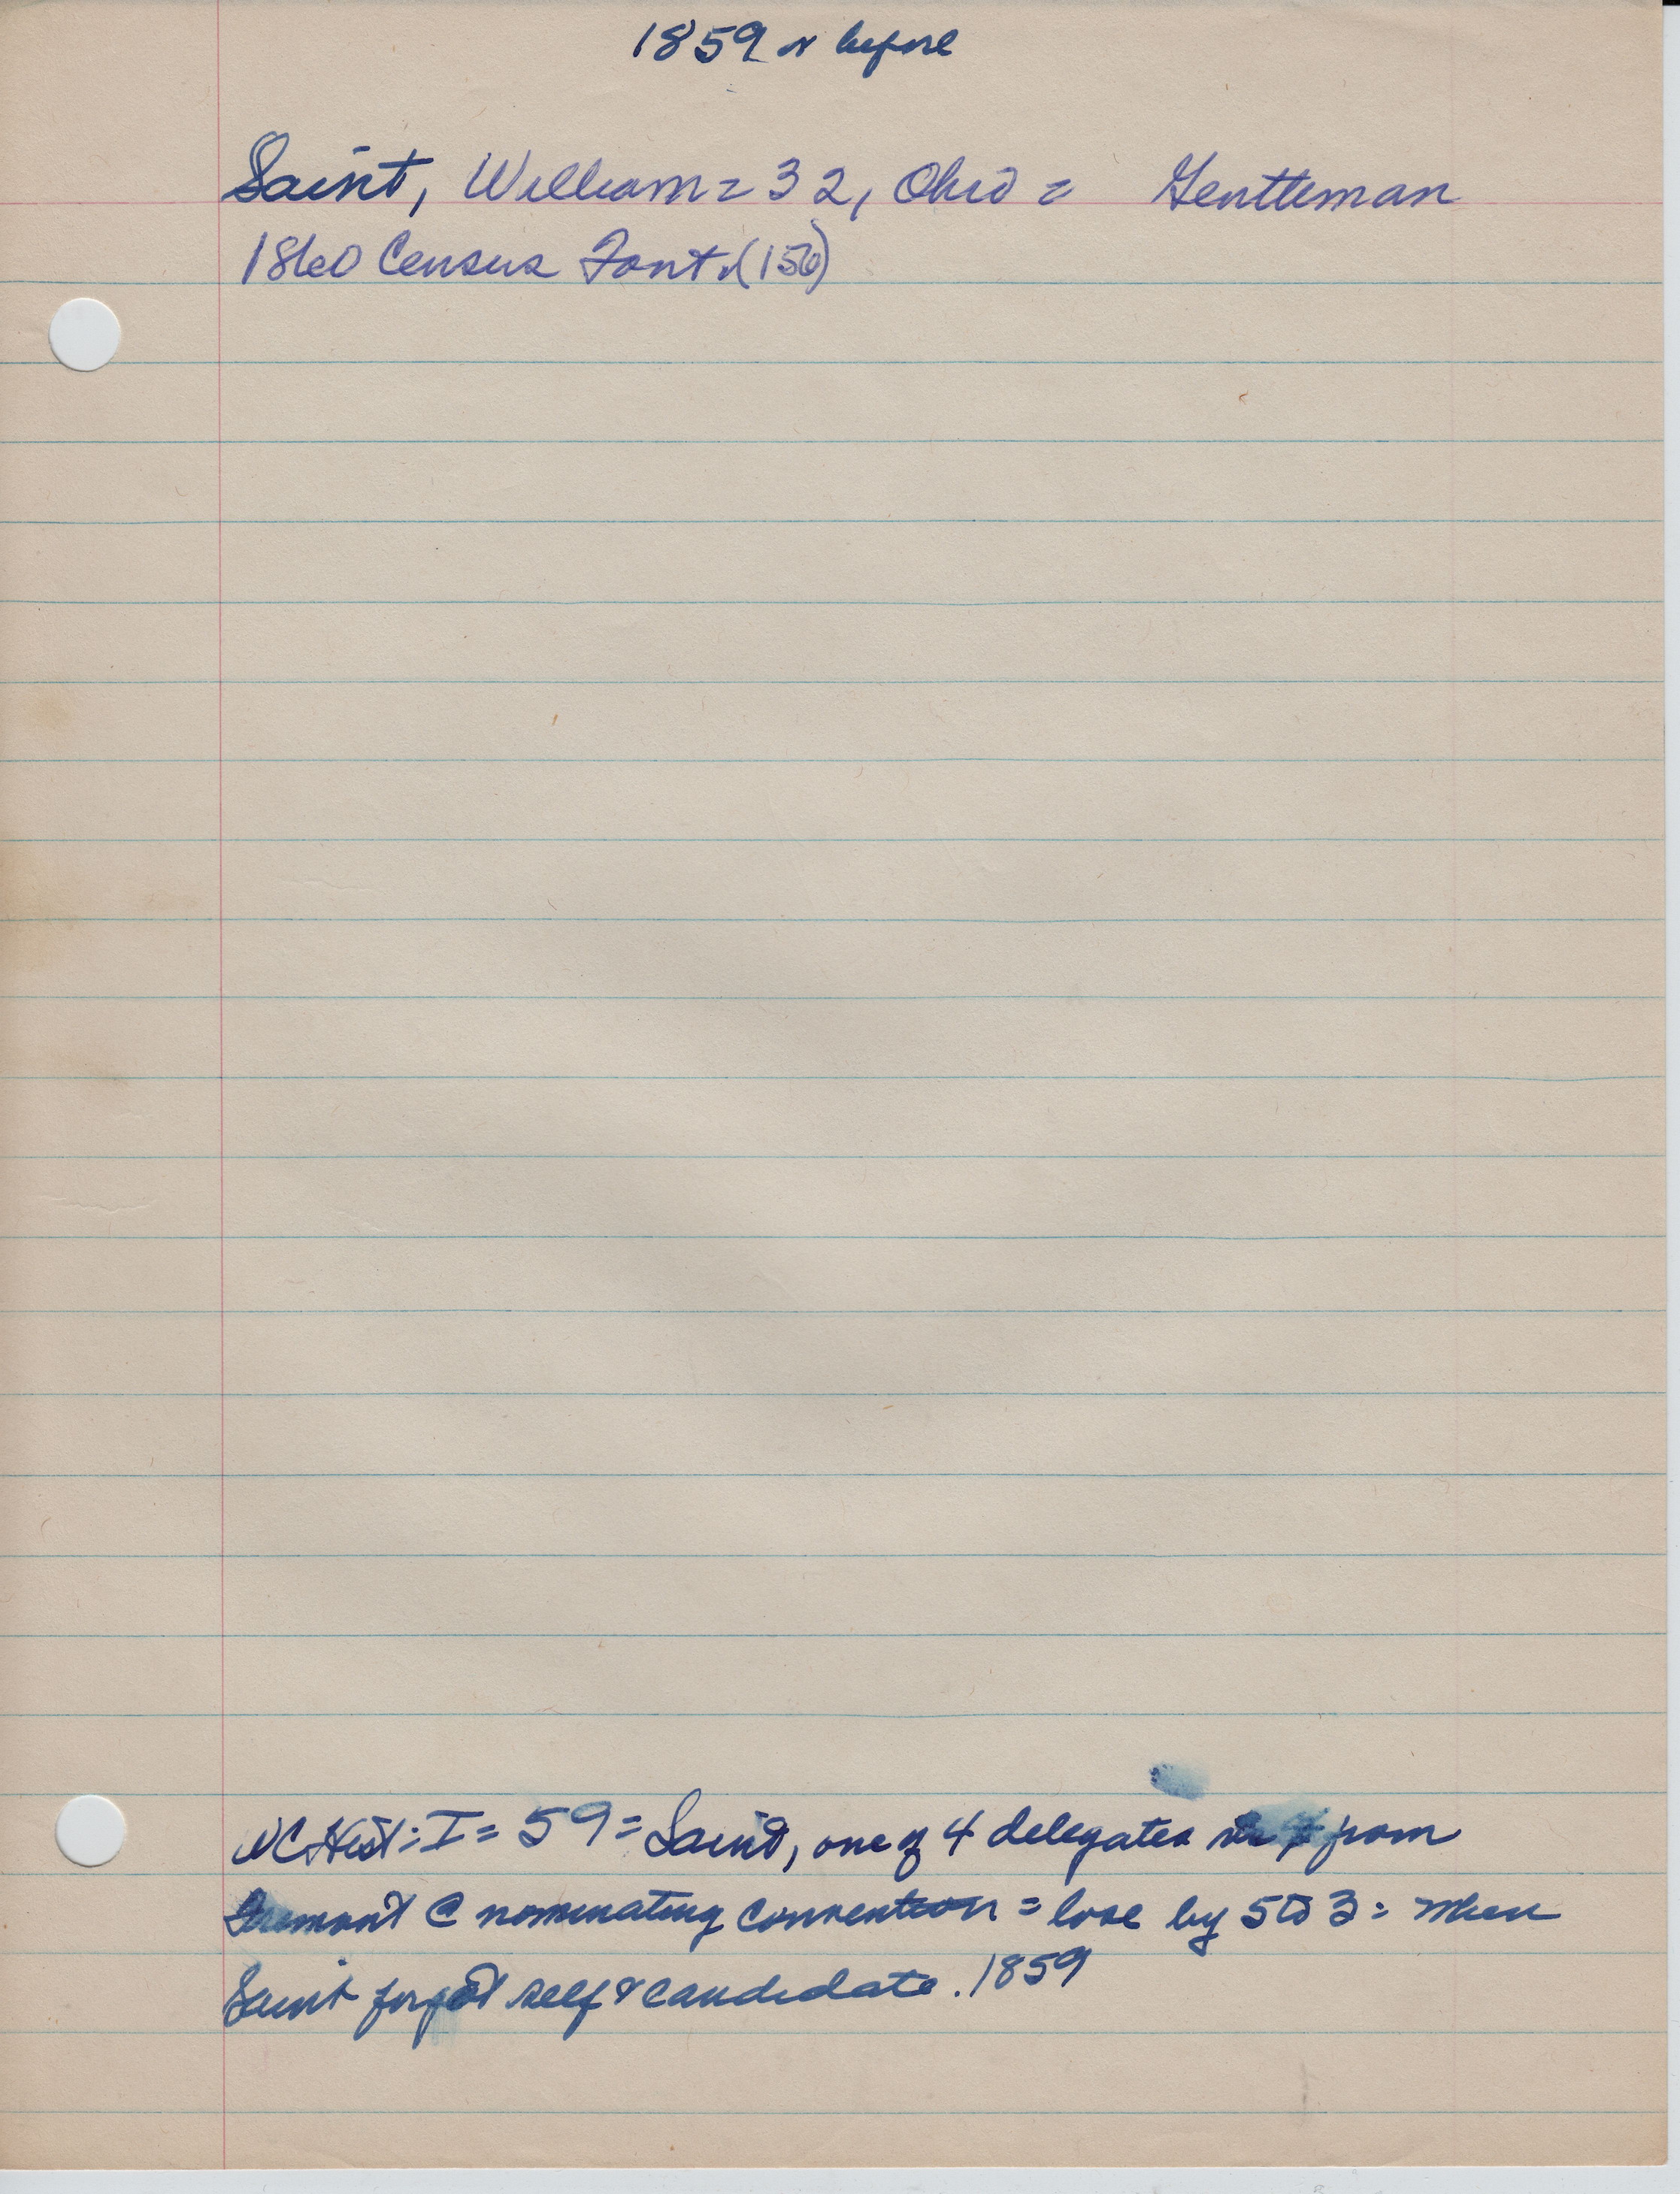 1859 or before
Saint, William = 32, Ohio = Gentleman
1860 Census Font. (156)
NC Hist: I = 59 = Saint, one of 4 delegates from
Fremont @ nominating convention = lose by 5 to 3 = when
Saint forgot self & candidate. 1859